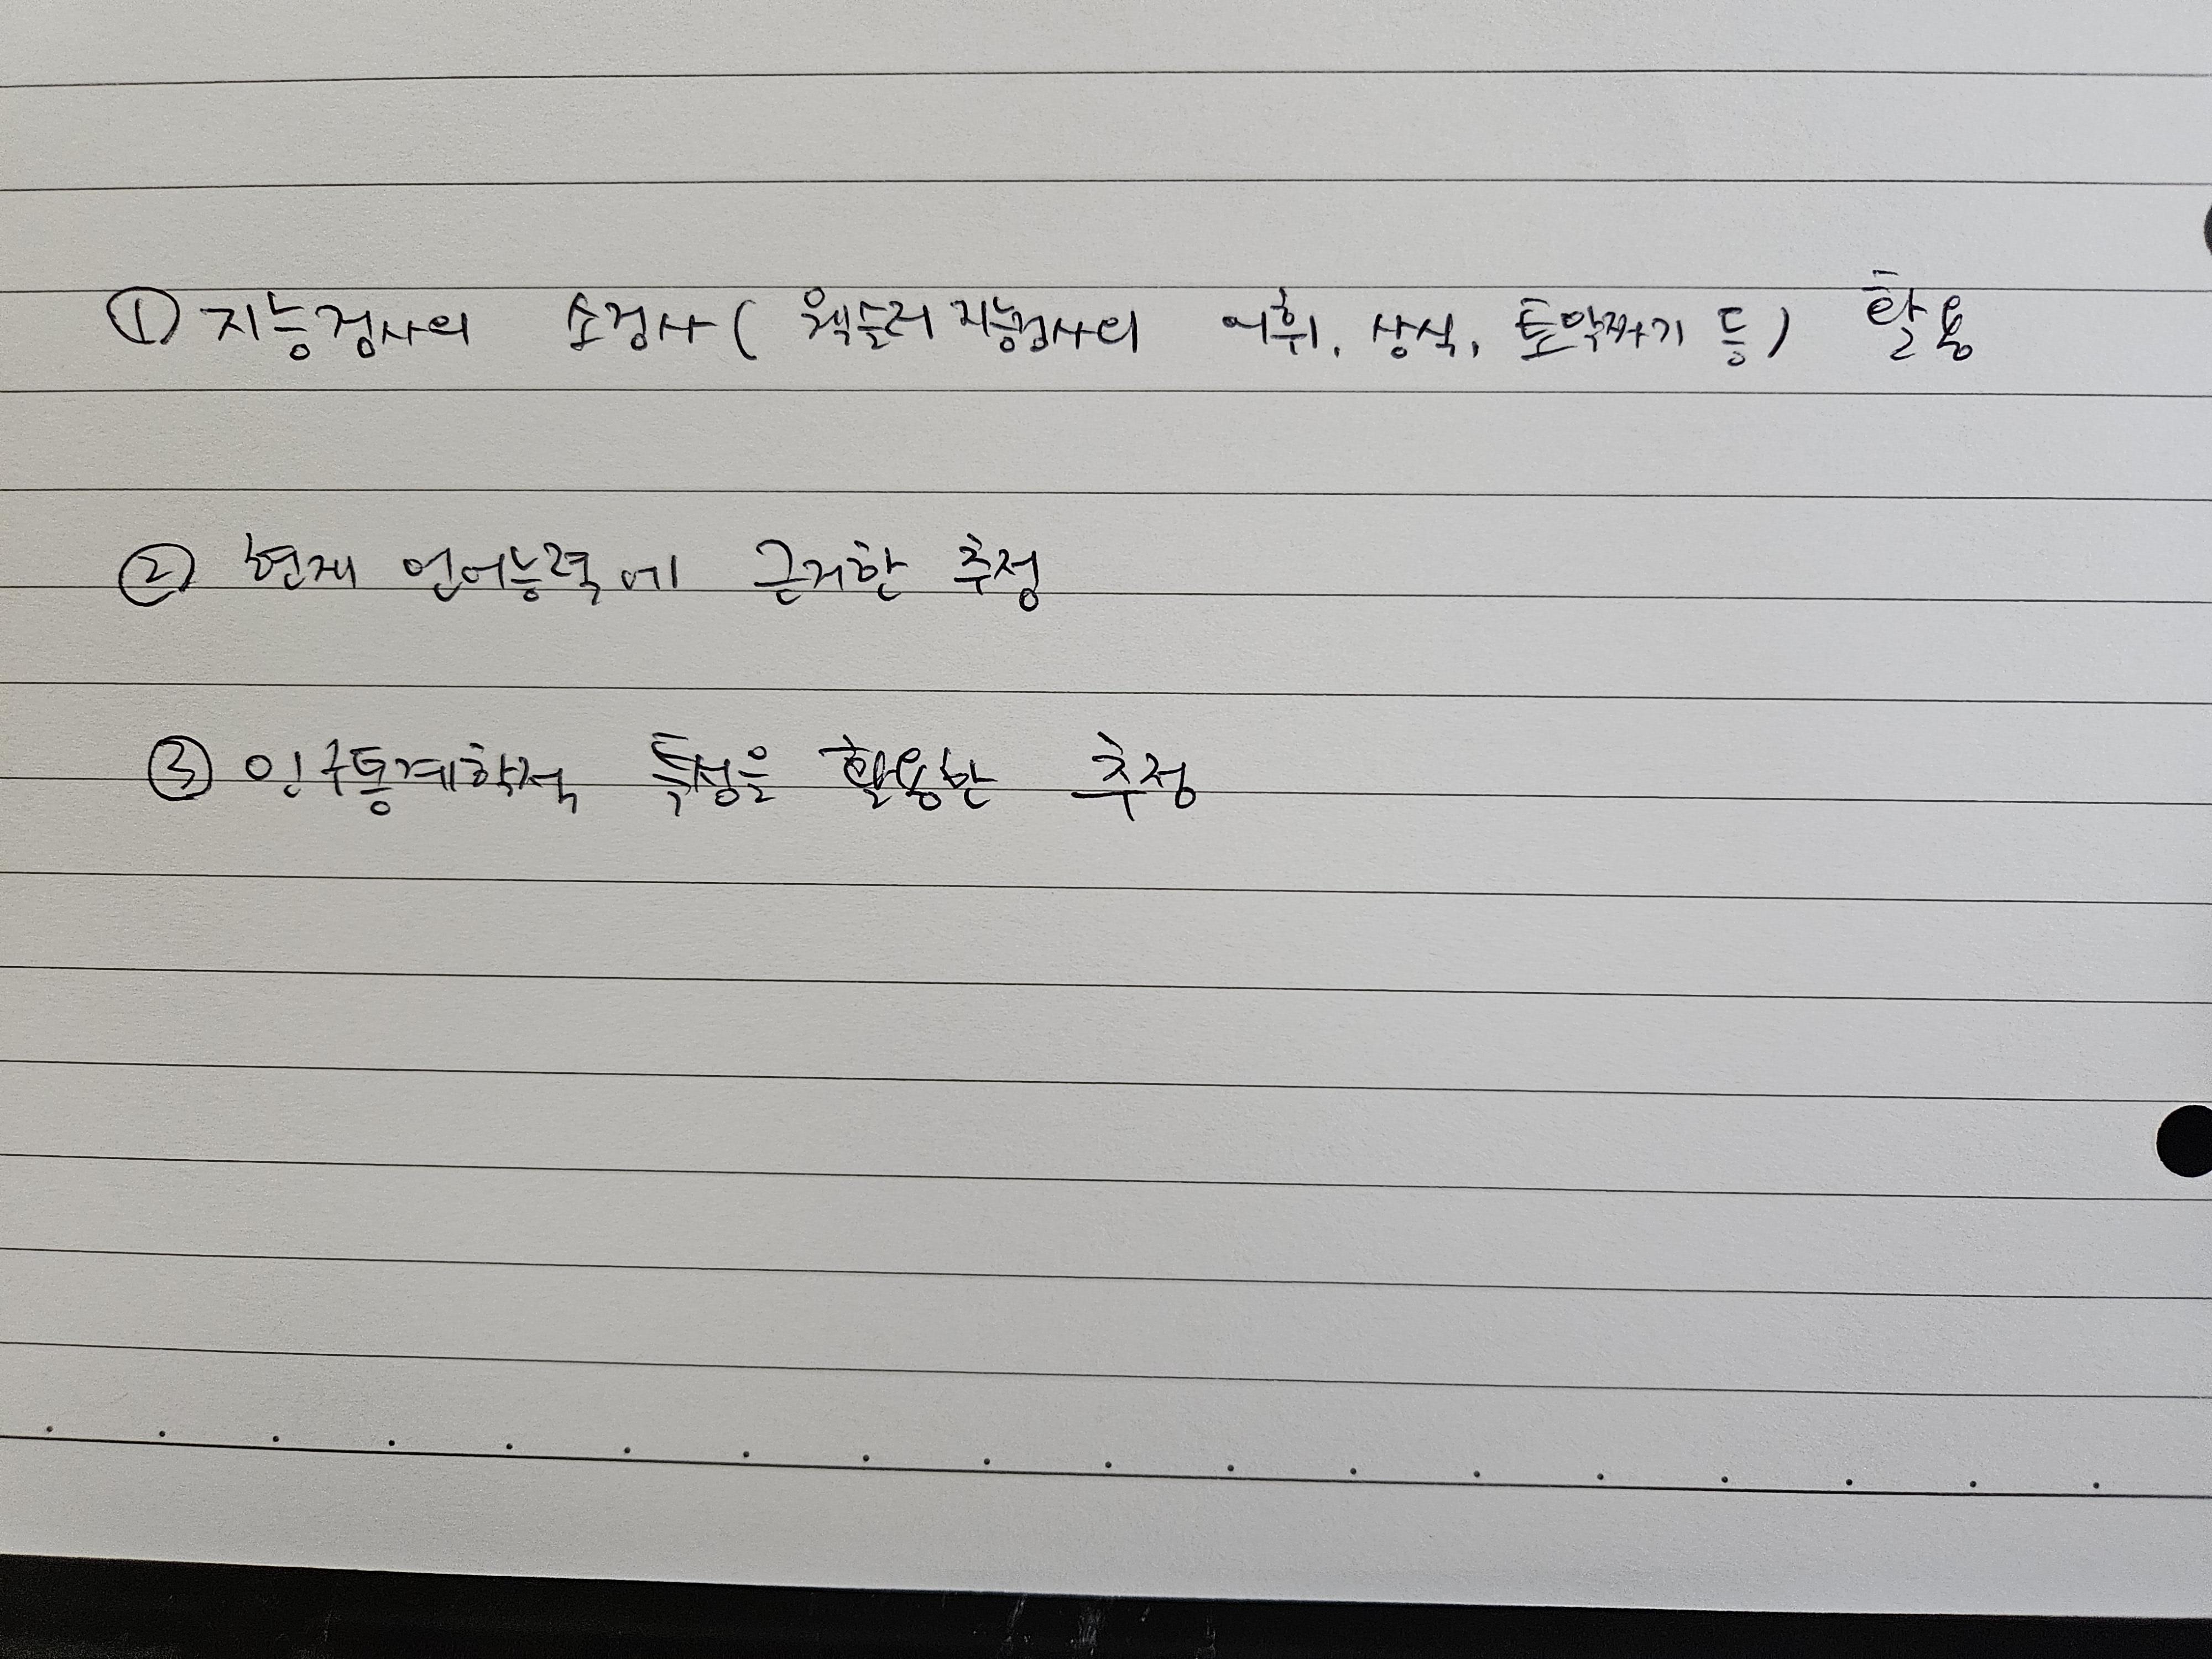 ① 지능검사의 소검사( 웩슬러 지능검사의 어휘, 상식, 토막짜기 등) 활용
② 현재 언어능력에 근거한 추정
③ 인구통계학적 특성을 활용한 추정